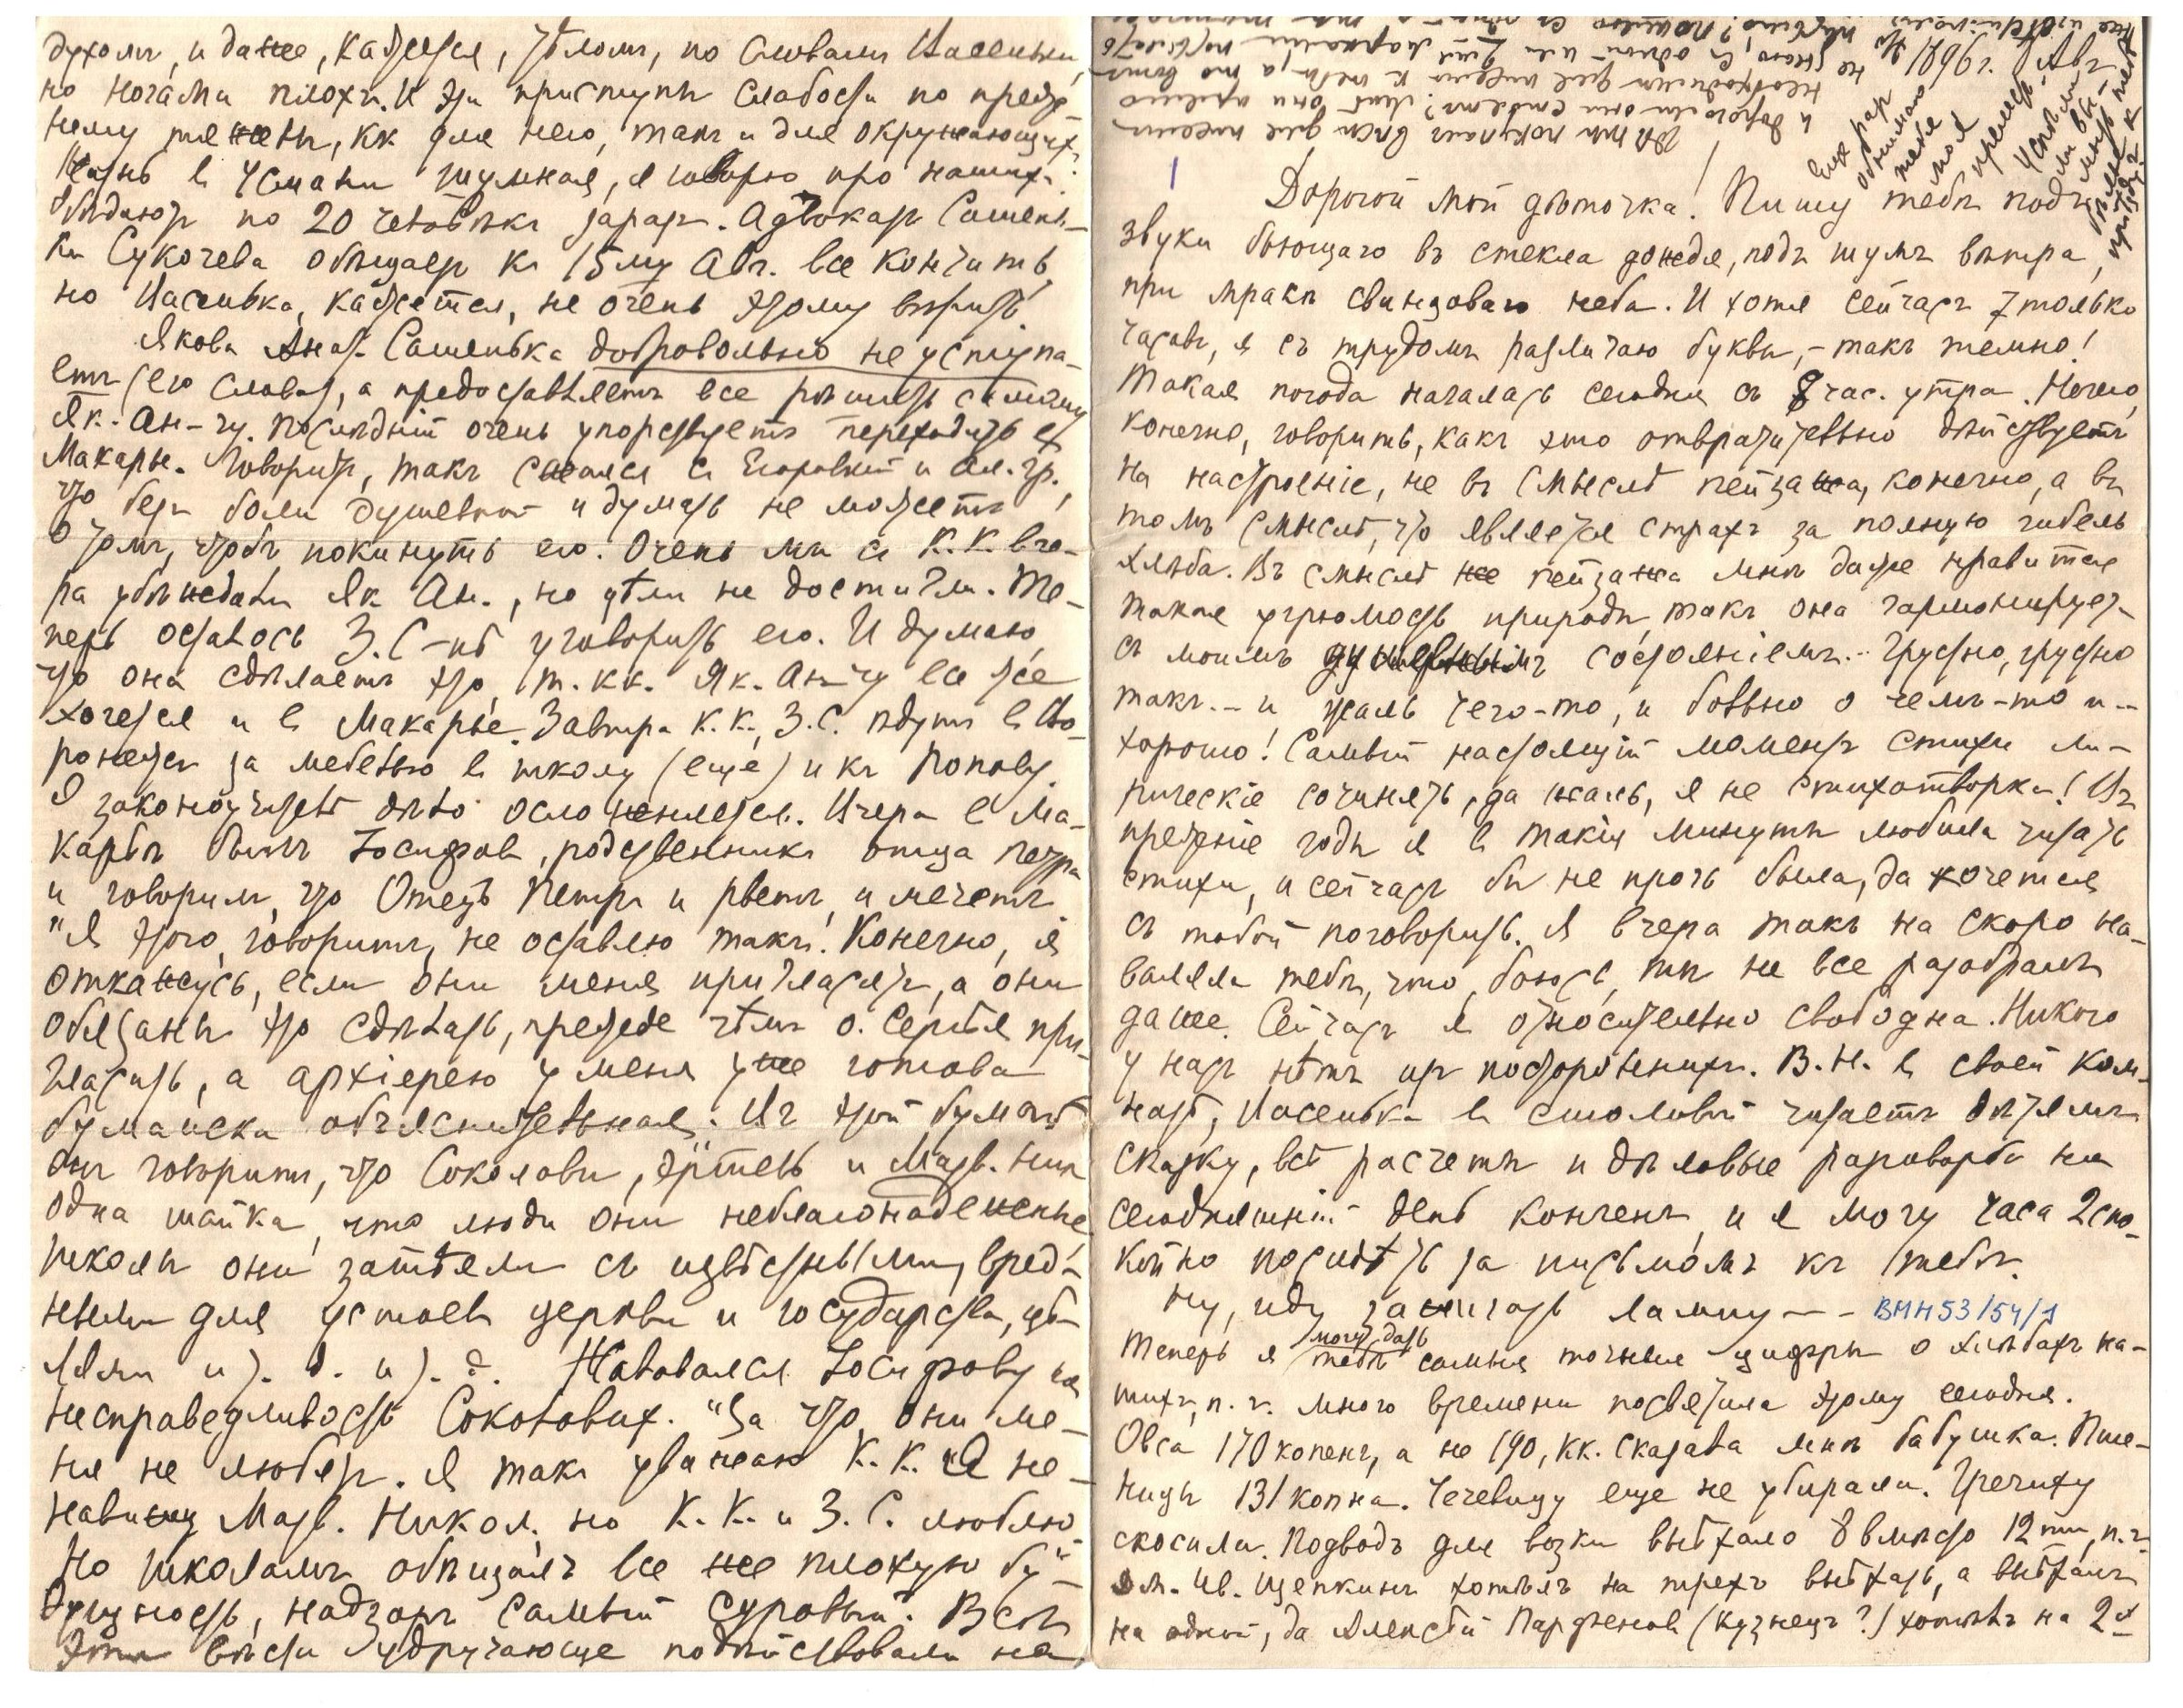 духомъ, и даже, кажется, тѣломъ, по словамъ Васеньки,
но ногами плохъ. И эти приступы слабости по преж-
нему тяжелы, кк для него, такъ и для окружающихъ.
Жизнь въ Усмани шумная, я говорю про нашихъ:
обѣдаютъ по 20 человѣкъ заразъ. Адвокатъ Сашень-
ки Сукочева обѣщаетъ къ 15му Авг. все кончить,
но Васенька, кажется, не очень этому вѣритъ.
Якова Анат. Сашенька добровольно не уступа-
етъ (его слова), а предоставляетъ все рѣшить самому
Як. Ан-чу. Послѣдній очень упорствуетъ переходить въ
Макарье. Говоритъ, такъ сжался съ Егоровной и Ал. Гр.,
что безъ боли душевной и думать не можетъ
о томъ, чтобъ покинуть его. Очень мы съ К.К. вче-
ра убѣждали Як. Ан., но цѣли не достигли. Те-
перь осталось З.С-нѣ уговорить его. И думаю,
что она сдѣлаетъ это, т.кк. Як. Ан-чу все же
хочется и въ Макарье. Завтра К.К., З.С. ѣдутъ въ Во-
ронежъ за мебелью въ школу (еще) и къ Попову.
О законоучителѣ дѣло осложняется. Вчера въ Ма-
карьѣ былъ Іосифовъ, родственникъ отца Петра
и говорилъ, что Отецъ Петръ и рветъ, и мечетъ.
"Я этого, говоритъ, не оставлю такъ! Конечно, я
откажусь, если они меня пригласятъ, а они
обязаны это сдѣлать, прежде чѣмъ о. Сергѣя при-
гласить, а архіерею у меня уже готова
бумажка объяснительная. Въ этой бумагѣ
онъ говоритъ, что Соколовы, Эртель и Матв. Ник.
одна шайка, что люди они неблагонадежные,
школы они затѣяли съ извѣстными, вред-
ными для устоевъ церкви и государства, цѣ-
лями и т. д. и т. д. Жаловался Іосифову на
несправедливость Соколовыхъ. "За что они ме-
ня не любятъ. Я такъ уважаю К.К. Я не-
навижу Матв. Никол., но К.К. и З.С. люблю.
Но школамъ обѣщалъ все же плохую бу-
дущность, надзоръ самый суровый. Всѣ
эти вѣсти удручающе подѣйствовали на
Да ты покупалъ вѣсы для писемъ
и дорого ли они стоятъ? Мнѣ они прямо
необходимы для писемъ къ тебѣ, а то вѣчно
не знаю, съ одной или 2мя марками посылать
7/VIII 1896 г. 8 Авг.
Еще разъ
обнимаю
тебя
моя
прелесть.
1
Дорогой мой дѣточка! Пишу тебѣ подъ
звуки бьющаго въ стекла дождя, подъ шумъ вѣтра,
при мракѣ свинцоваго неба. И хотя сейчасъ 7 только
часовъ, я съ трудомъ различаю буквы, - такъ темно!
Такая погода началась сегодня съ 8 час. утра. Нечего,
конечно, говорить, какъ это отвратительно дѣйствуетъ
на настроеніе, не въ смыслѣ пейзажа, конечно, а въ
томъ смыслѣ, что является страхъ за полную гибель
хлѣба. Въ смыслѣ же пейзажа мнѣ даже нравится
такая угрюмость природы, такъ она гармонируетъ
съ моимъ душевнымъ состояніемъ.. Грустно, грустно
такъ.. - и жаль чего-то, и больно о чемъ-то и ..
хорошо! Самый настоящій моментъ стихи ли-
рическіе сочинять, да жаль, я не стихотворка! Въ
прежніе годы я въ такія минуты любила читать
стихи, и сейчасъ бы не прочь была, да хочется
съ тобой поговорить. Я вчера такъ на скоро на-
валяла тебѣ, что, боюсь, ты не все разобралъ
даже. Сейчасъ я относительно свободна. Никого
у насъ нѣтъ изъ постороннихъ. В.Н. въ своей ком-
натѣ, Васенька въ столовой читаетъ дѣтямъ
сказку, всѣ расчеты и дѣловые разговоры на
сегодняшній день кончены, и я могу часа 2 спо-
койно посидѣть за письмомъ къ тебѣ.
Ну, иду зажигать лампу - - ВМН53/54/1
Теперь я могу дать тебѣ самыя точныя цифры о хлѣбахъ на-
шихъ, п.ч. много времени посвятила этому сегодня.
Овса 170 копенъ, а не 190, кк. сказала мнѣ бабушка. Пше-
ницы 131 копна. Чечевицу еще не убирали. Гречиху
скосили. Подводъ для возки выѣхало 8 вмѣсто 12ти, п.ч.
Ив. Щепкинъ хотѣлъ на трехъ выѣхать, а выѣхалъ
на одной, да Алексѣй Парфеновъ (кузнецъ?) хотѣлъ на 2х